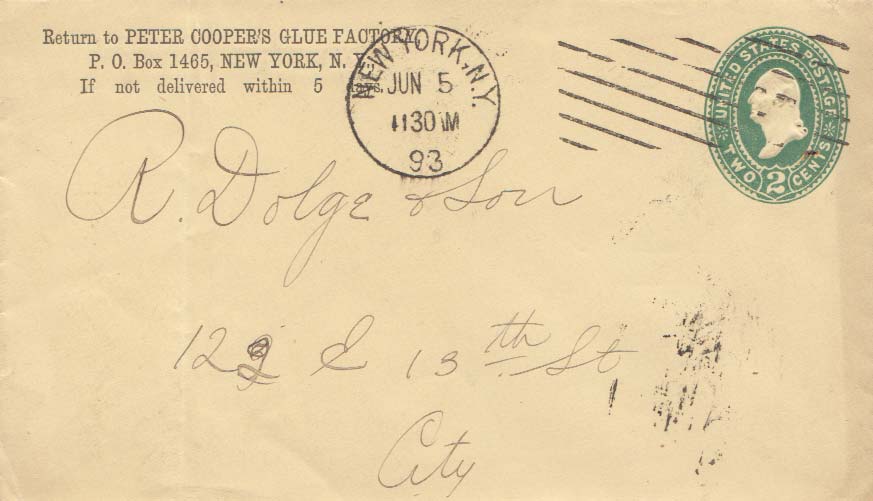 Return to PETER COOPER'S GLUE FACTORY,
P. O. Box 1465, NEW YORK, N. Y.
If not delivered within 5 days.
NEW YORK, N.Y.
JUN 5
1130 M
93
UNITED STATES POSTAGE
TWO 2 CENTS
R. Dolge & Son
122 E 13th St
City